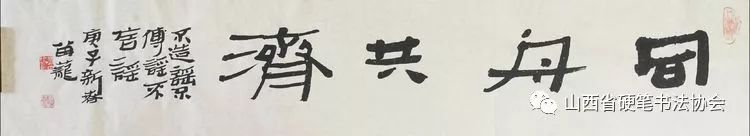 同舟共濟
不造謠不
傳謠不
信謠
庚子新春
龍
山西省硬笔书法协会